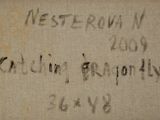 NESTEROVA N
2009
Catching DRAGONFLY
36 x 48